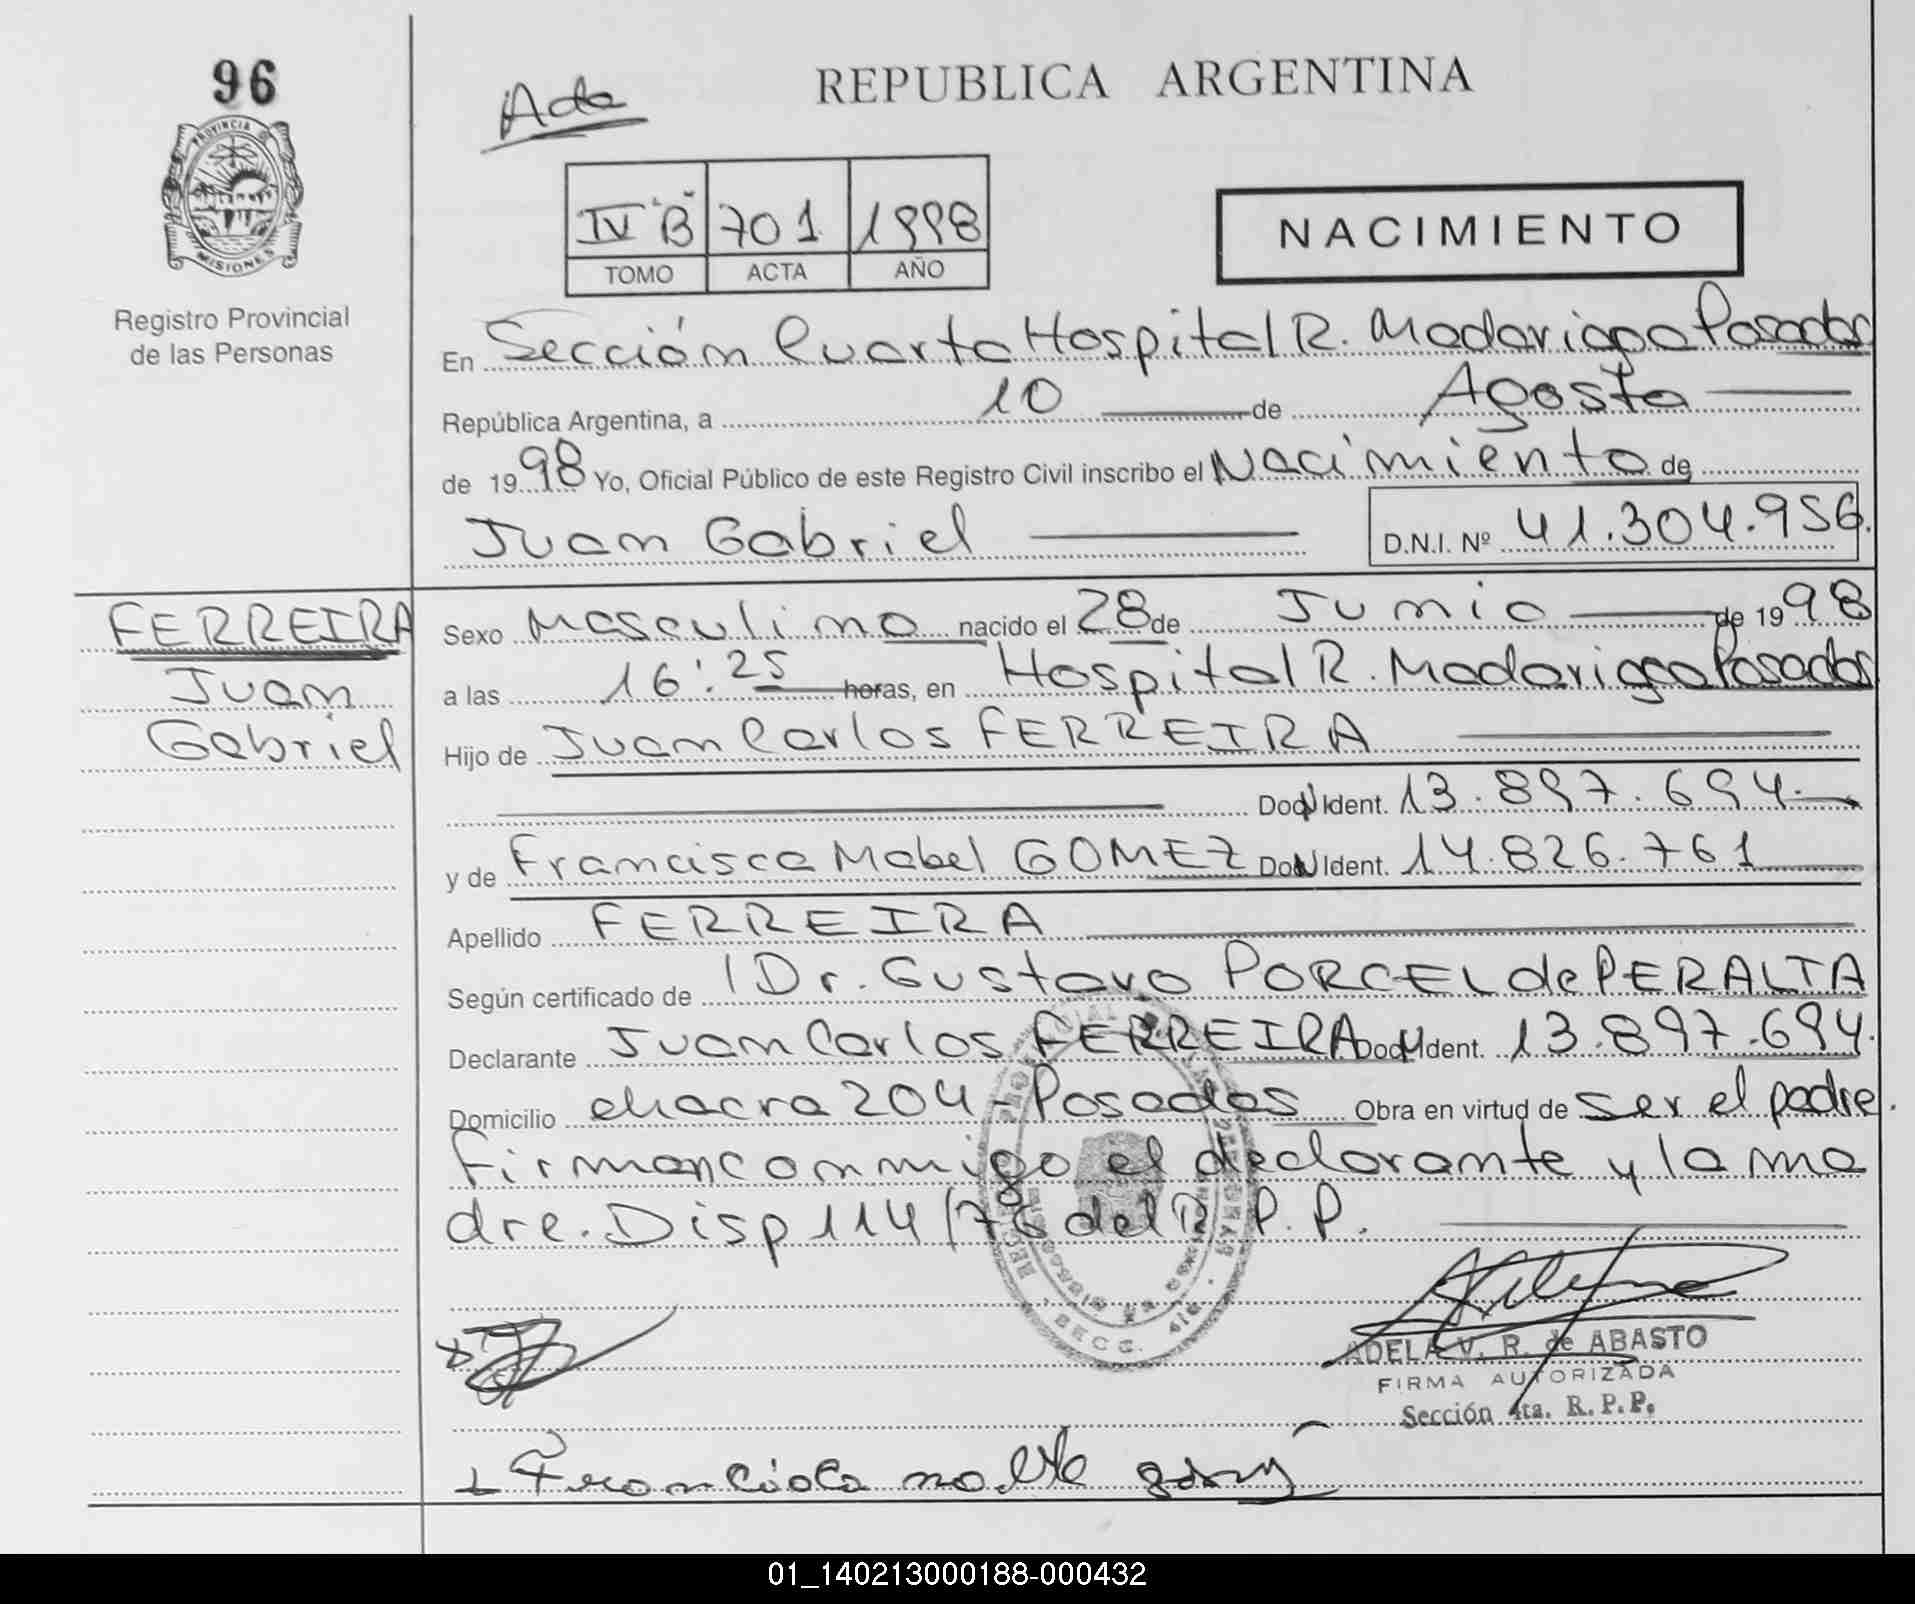 96
Acta
REPUBLICA ARGENTINA
PROVINCIA DE
MISIONES
Registro Provincial
de las Personas
IV "B" 701 1998
TOMO ACTA AÑO
NACIMIENTO
En Sección Cuarta Hospital R. Madariaga Posadas
República Argentina, a 10 de Agosto
de 1998 Yo, Oficial Público de este Registro Civil inscribo el Nacimiento de
Juan Gabriel D.N.I. Nº 41.304.956.
FERREIRA
Juan
Gabriel
Sexo Masculino nacido el 28 de Junio de 1998
a las 16:25 horas, en Hospital R. Madariaga Posadas
Hijo de Juan Carlos FERREIRA
Doc. Ident. 13.897.694.
y de Francisca Mabel GOMEZ Doc. Ident. 14.826.761
Apellido FERREIRA
Según certificado de Dr. Gustavo PORCEL de PERALTA
Declarante Juan Carlos FERREIRA Doc. Ident. 13.897.694.
Domicilio chacra 204 - Posadas Obra en virtud de ser el padre.
Firman conmigo el declarante y la ma
dre. Disp 114/76 del R.P.P.
SECC. 4ta
ADELA V. R. de ABASTO
FIRMA AUTORIZADA
Sección 4ta. R. P. P.
01_140213000188-000432